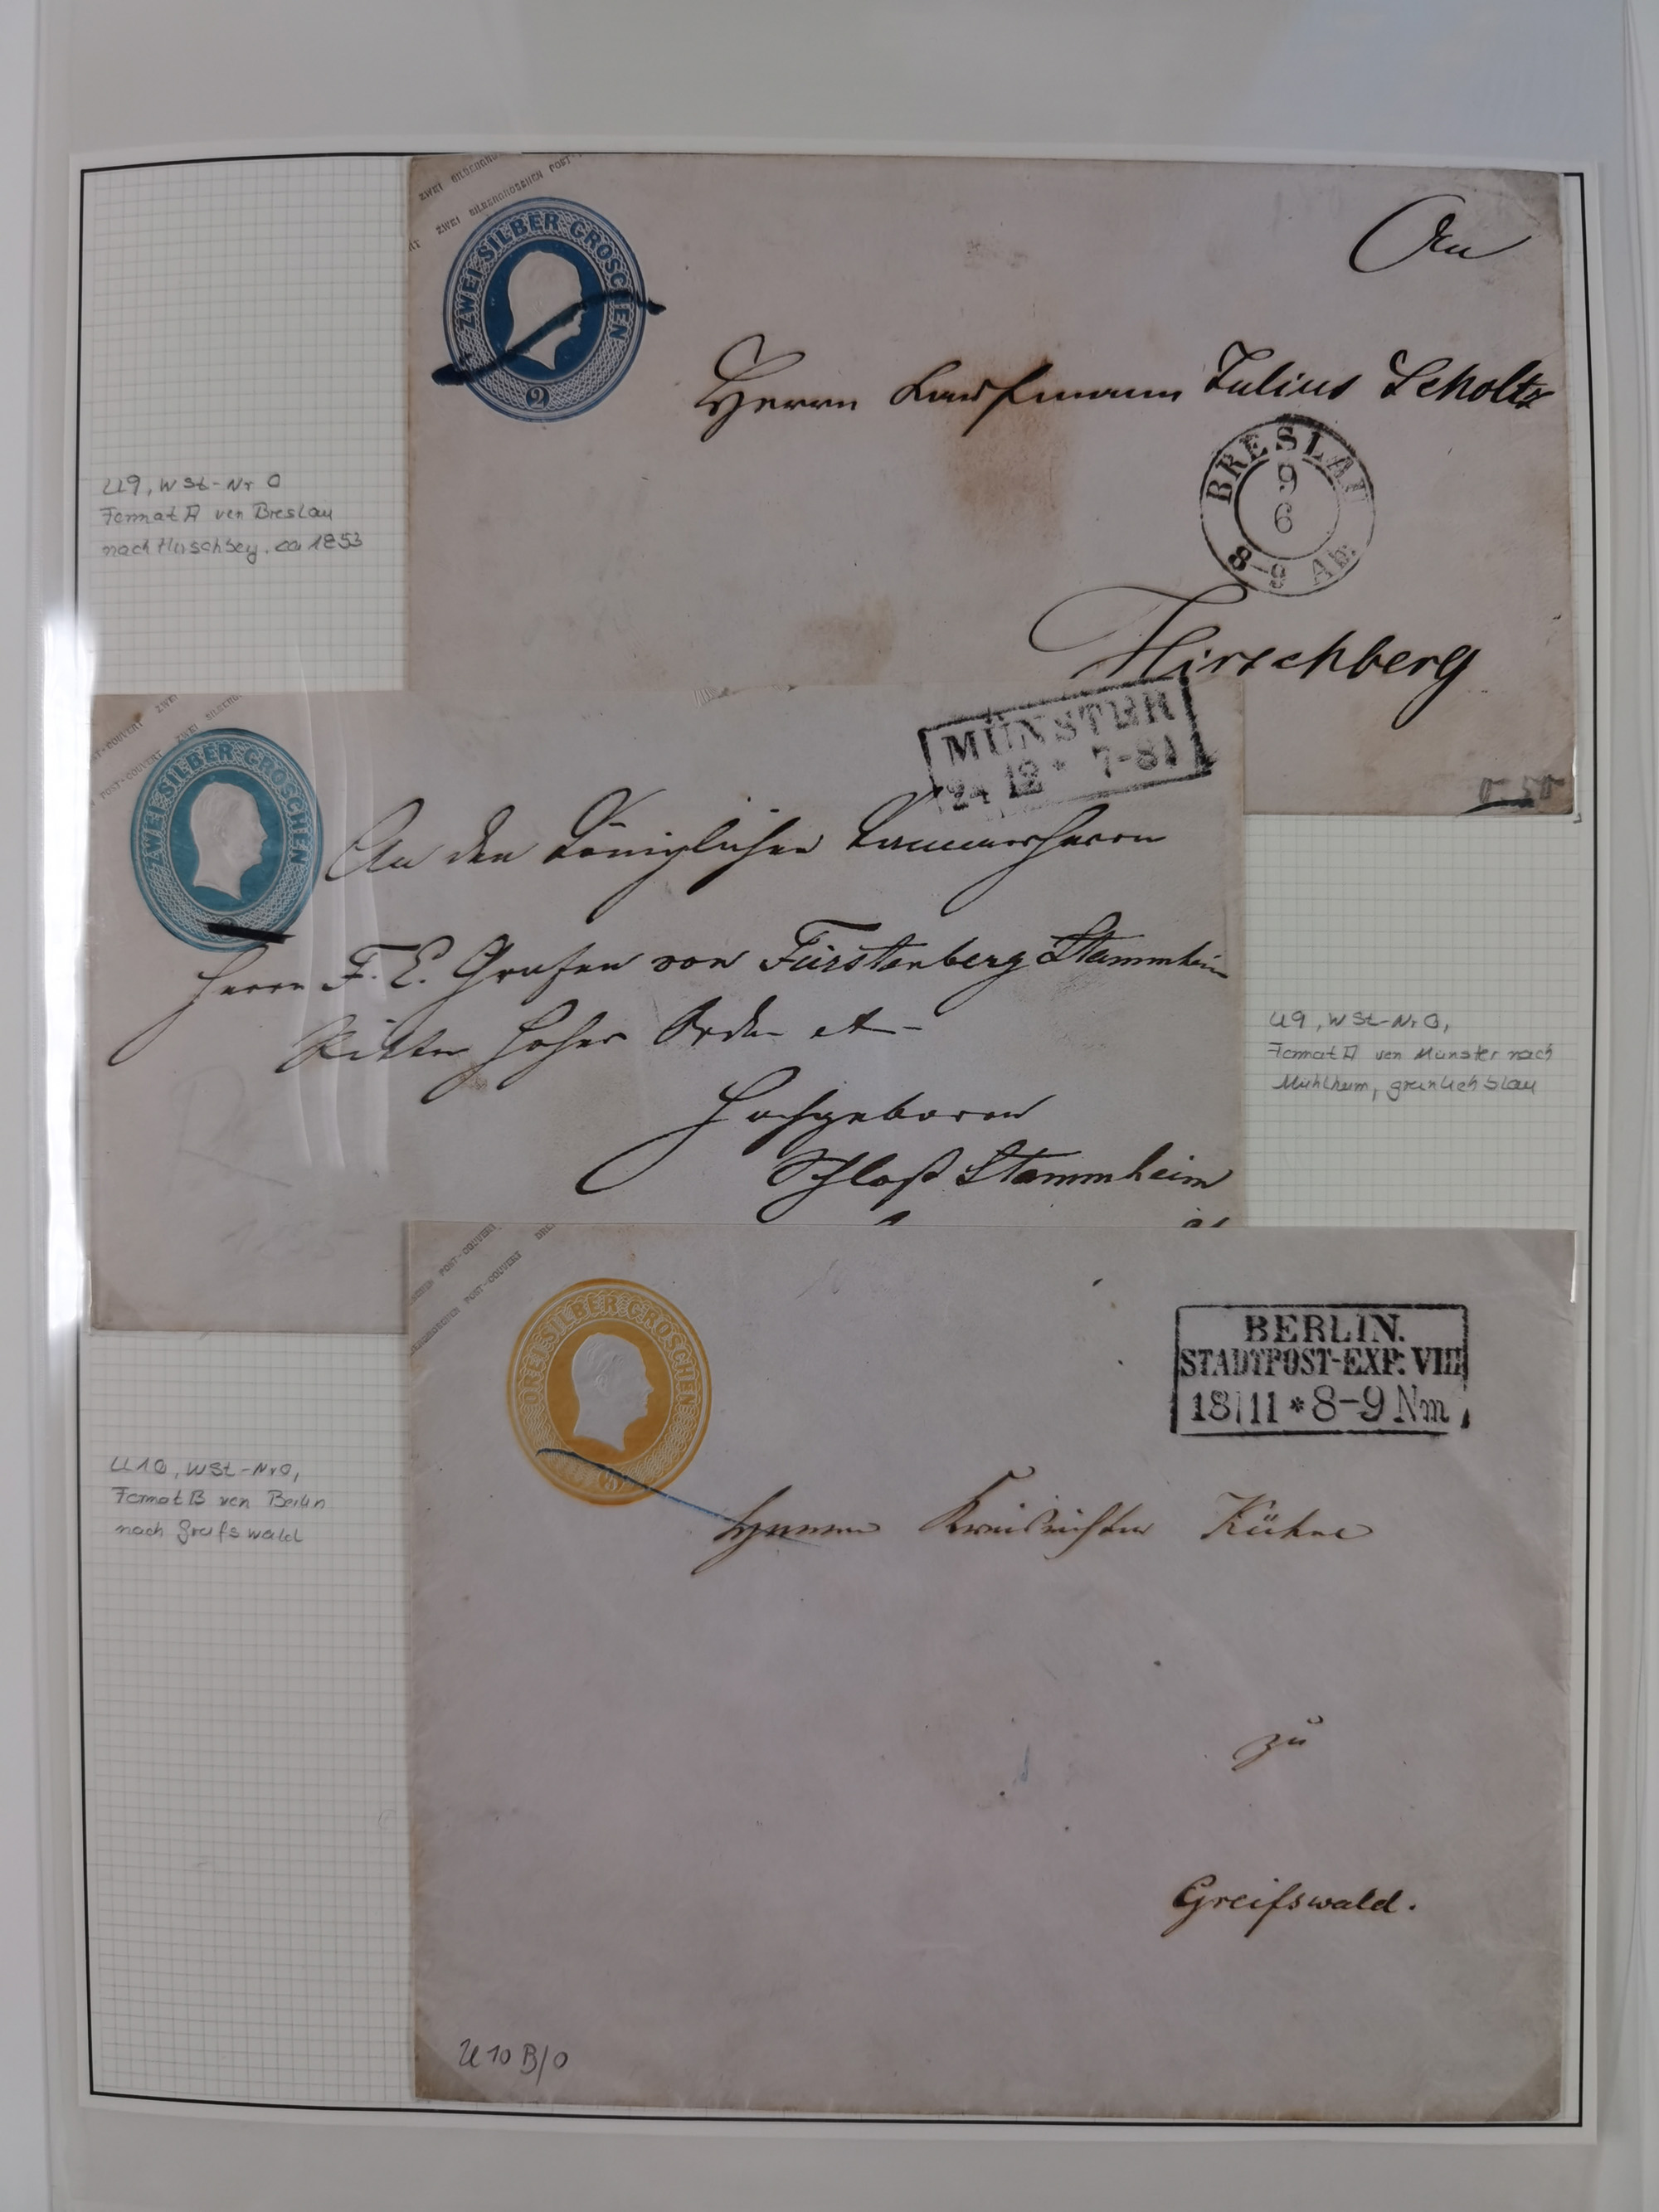 ZWEI SILBERGRO
ZWEI SILBERGROSCHEN POST-
ZWEI SILBER GROSCHEN
2
An
Herrn Kaufmann Julius Scholtz
BRESLAU
9
6
8-9 Ab.
Hirschberg
U9, WSt-Nr 0
Format A von Breslau
nach Hirschberg. ca 1853
POST-COUVERT ZWEI
POST-COUVERT ZWEI SILBERG
ZWEI SILBER GROSCHEN
MÜNSTER
24 12 * 7-8
An den Königlichen Kammerherrn
Herrn F. E. Grafen von Fürstenberg Stammheim
Ritter hoher Orden et
Hochgeboren
Schloß Stammheim
U9, WSt-Nr 0,
Format A von Münster nach
Mühlheim, grünlichblau
POST-COUVERT
POST-COUVERT DREI
DREI SILBER GROSCHEN
3
BERLIN.
STADTPOST-EXP. VIII
18/11 * 8-9 Nm
Herrn Kreisrichter Kühne
zu
Greifswald.
U10, WSt-Nr 0,
Format B von Berlin
nach Greifswald
U 10 B/0